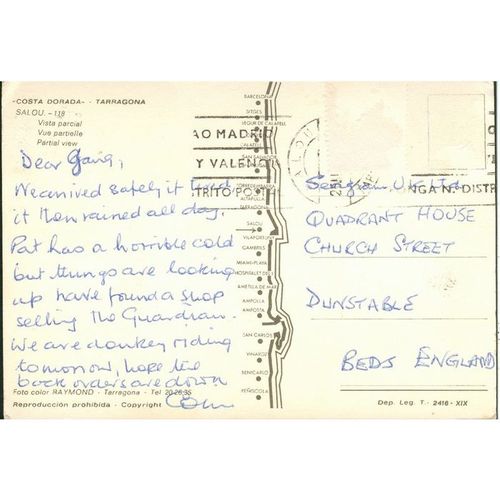 -COSTA DORADA- - TARRAGONA
SALOU. - 118
Vista parcial
Vue partielle
Partial view
Dear Gang,
We arrived safely it
it then rained all day.
Pat has a horrible cold
but things are looking
up have found a shop
selling The Guardian.
We are donkey riding
tomorrow, hope the
back orders are down
Foto color RAYMOND - Tarragona - Tel
Reproducción prohibida - Copyright
AO MADRID
Y VALENCI
TRITO PO
BARCELONA
SITGES
SEGUR DE CALAFELL
CALAFELL
SAN SALVADOR
TORREDEMBARRA
ALTAFULLA
TARRAGONA
VILAFORTUNY
SALOU
CAMBRILS
MIAMI-PLAYA
HOSPITALET DEL I.
AMETLLA DE MAR
AMPOLLA
AMPOSTA
SAN CARLOS
VINAROZ
BENICARLO
PEÑISCOLA
NGA Nº DISTR
QUADRANT HOUSE
CHURCH STREET
DUNSTABLE
BEDS ENGLAND
Dep. Leg. T. - 2416 - XIX